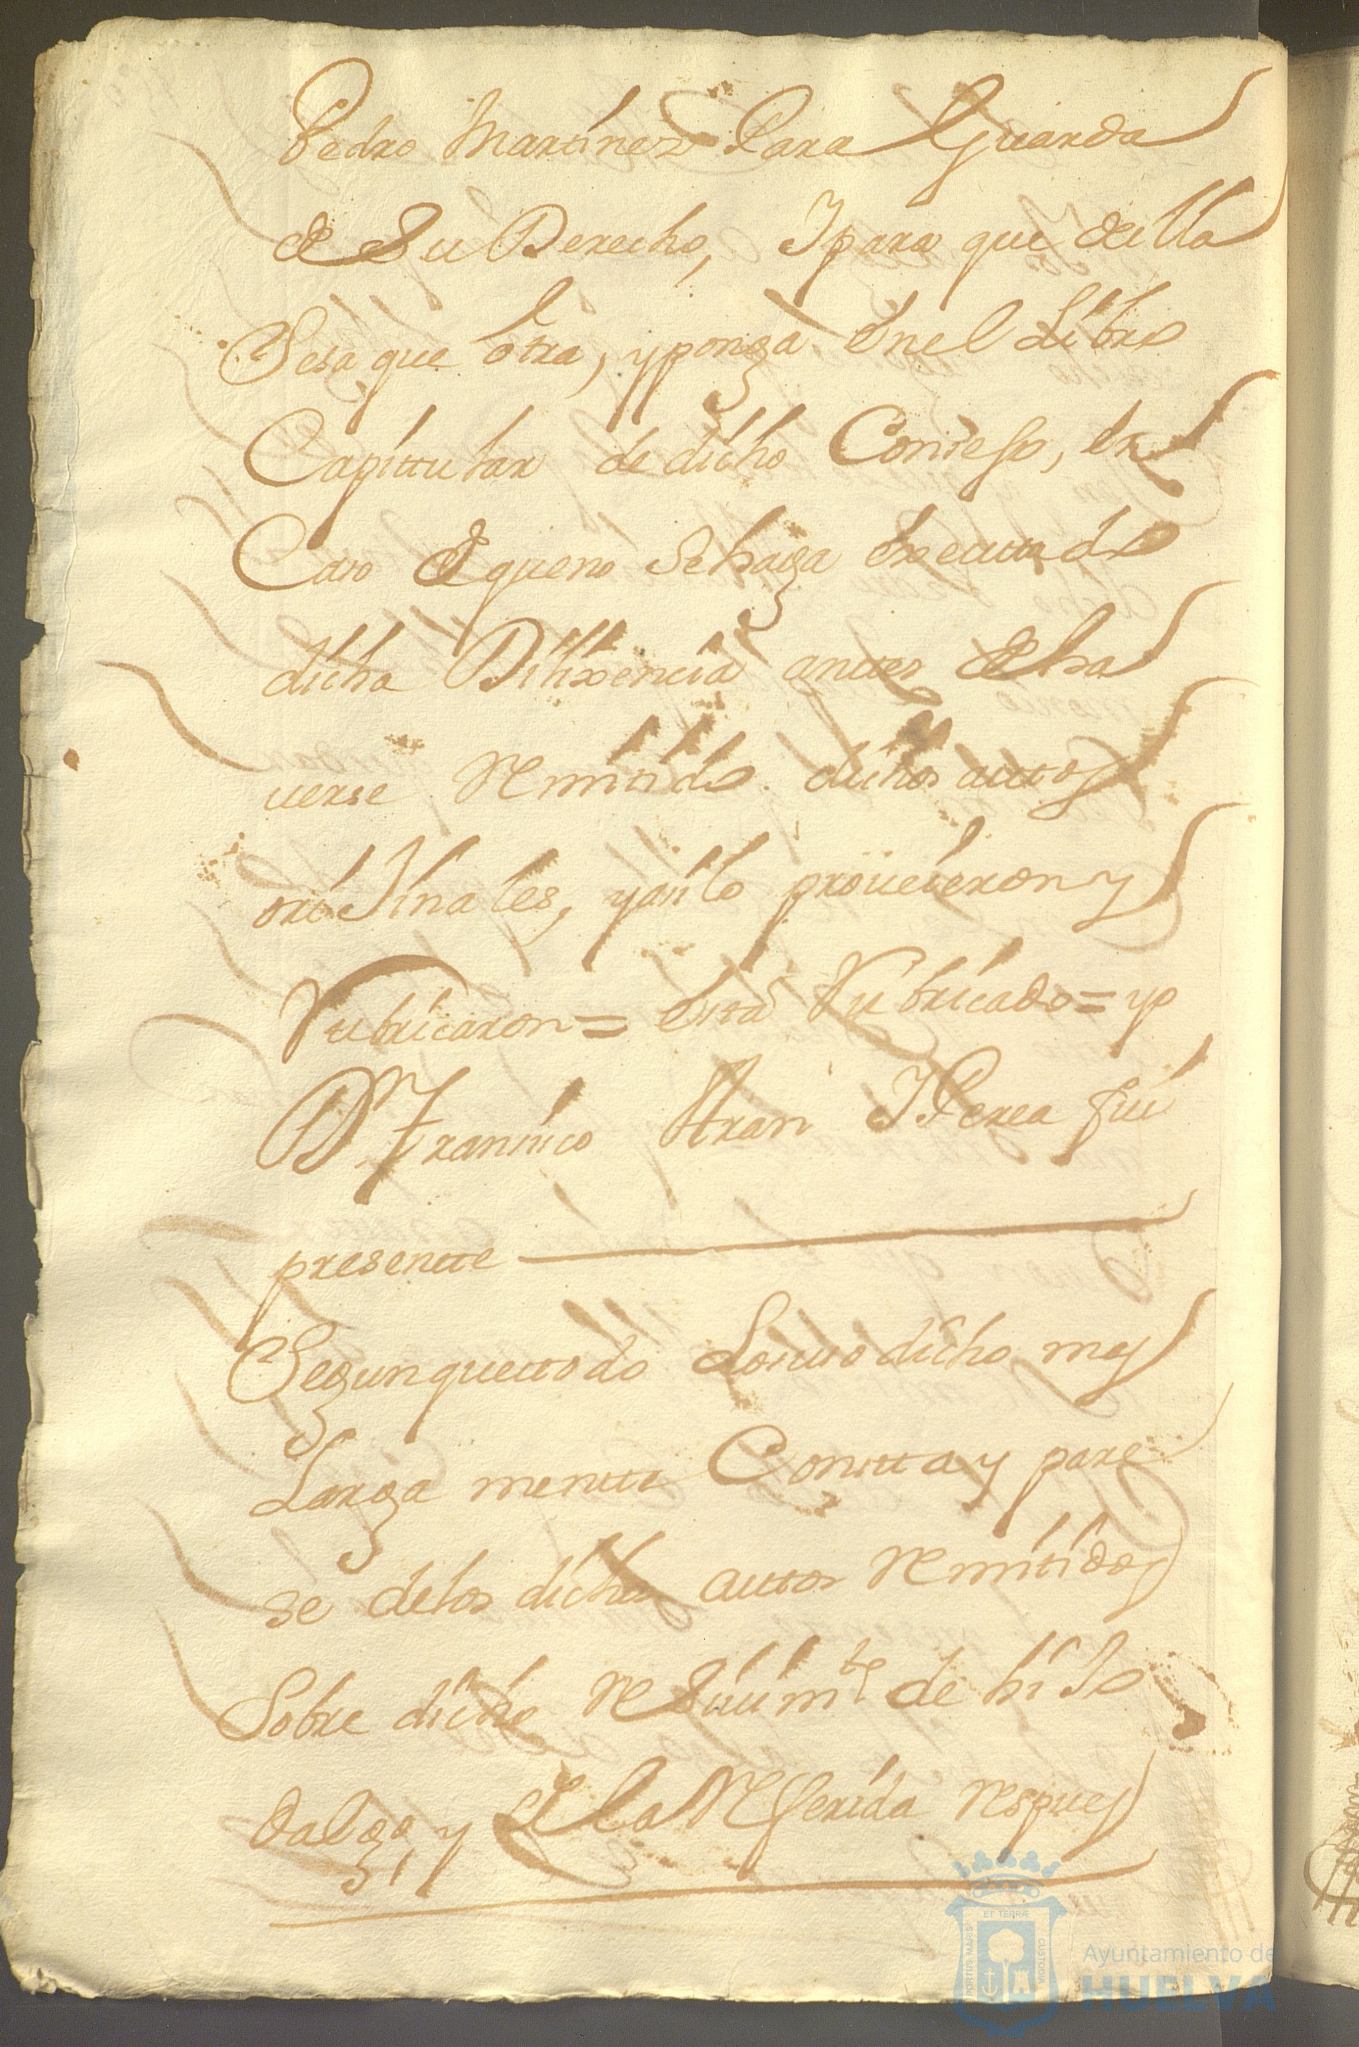 Pedro Martinez Para Guarda
de Su Derecho, Y para que della
Sesaque otra, y ponga En el Libro
Capittular de dicho Consejo, en
Caso de queno Se haga executado
dicha Dilixencia anttes de ha
verse Remitido dichos auttos
oriJinales, y asi lo proveieron y
Rubricaron = esta Rubricado = yo
Dn Francisco Y Perea fui
presentte
Segun que ttodo Lo suso dicho mas
Larga mentte Constta y pare
se delos dichos auttos Remitidos
Sobre dicho ReSivimto de hiJo
dalgo, y de la Referida respues
Ayuntamiento de
HUELVA